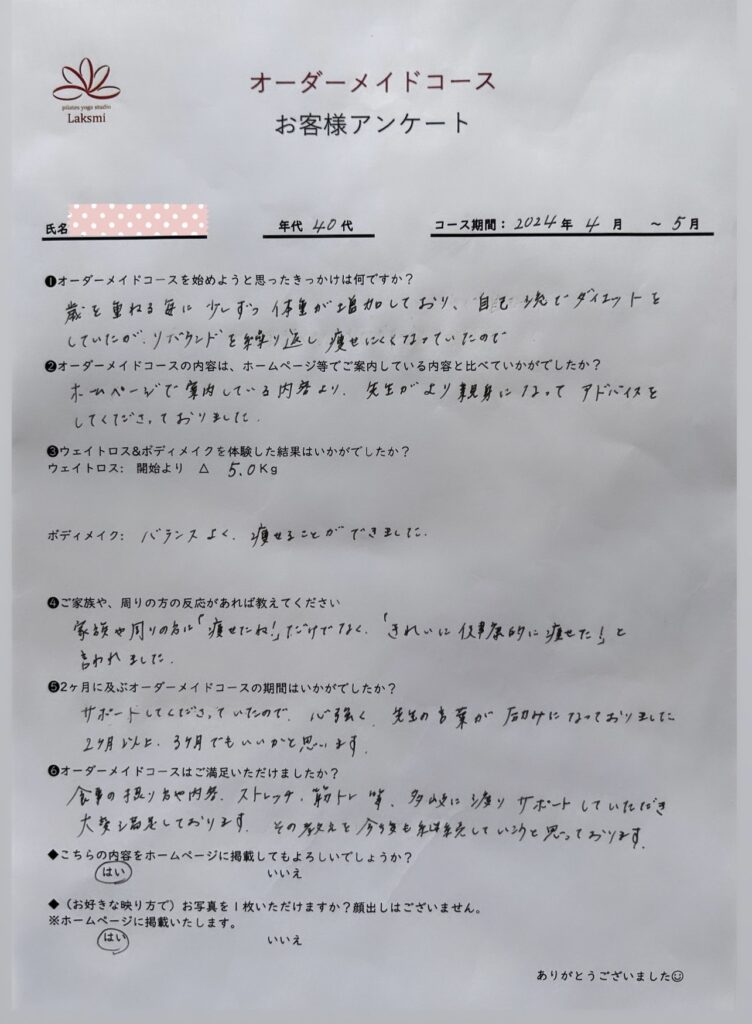 pilates yoga studio
Laksmi
オーダーメイドコース
お客様アンケート
氏名
年代 40 代
コース期間: 2024 年 4 月 ～ 5 月
❶オーダーメイドコースを始めようと思ったきっかけは何ですか？
歳を重ねる毎に 少しずつ 体重が増加しており、自己流でダイエットを
していたが、リバウンドを繰り返し 痩せにくくなっていたので
❷オーダーメイドコースの内容は、ホームページ等でご案内している内容と比べていかがでしたか？
ホームページで案内している内容より、先生がより親身になって アドバイスを
してくださっておりました.
❸ウェイトロス&ボディメイクを体験した結果はいかがでしたか？
ウェイトロス: 開始より △ 5.0Kg
ボディメイク: バランスよく、痩せることができました.
❹ご家族や、周りの方の反応があれば教えてください
家族や周りの方に「痩せたね!」だけでなく、「きれいに健康的に痩せた!」と
言われました.
❺2ヶ月に及ぶオーダーメイドコースの期間はいかがでしたか？
サポートしてくださっていたので、心強く、先生の言葉が 励みになっておりました
2ヶ月以上、3ヶ月でもいいかと思います.
❻オーダーメイドコースはご満足いただけましたか？
食事の摂り方や内容、ストレッチ、筋トレ 等、多岐に渡り サポートしていただき
大変満足しております. その教えを 今後も継続していこうと思っております.
◆こちらの内容をホームページに掲載してもよろしいでしょうか？
はい いいえ
◆（お好きな映り方で）お写真を1枚いただけますか？顔出しはございません。
※ホームページに掲載いたします。
はい いいえ
ありがとうございました☺